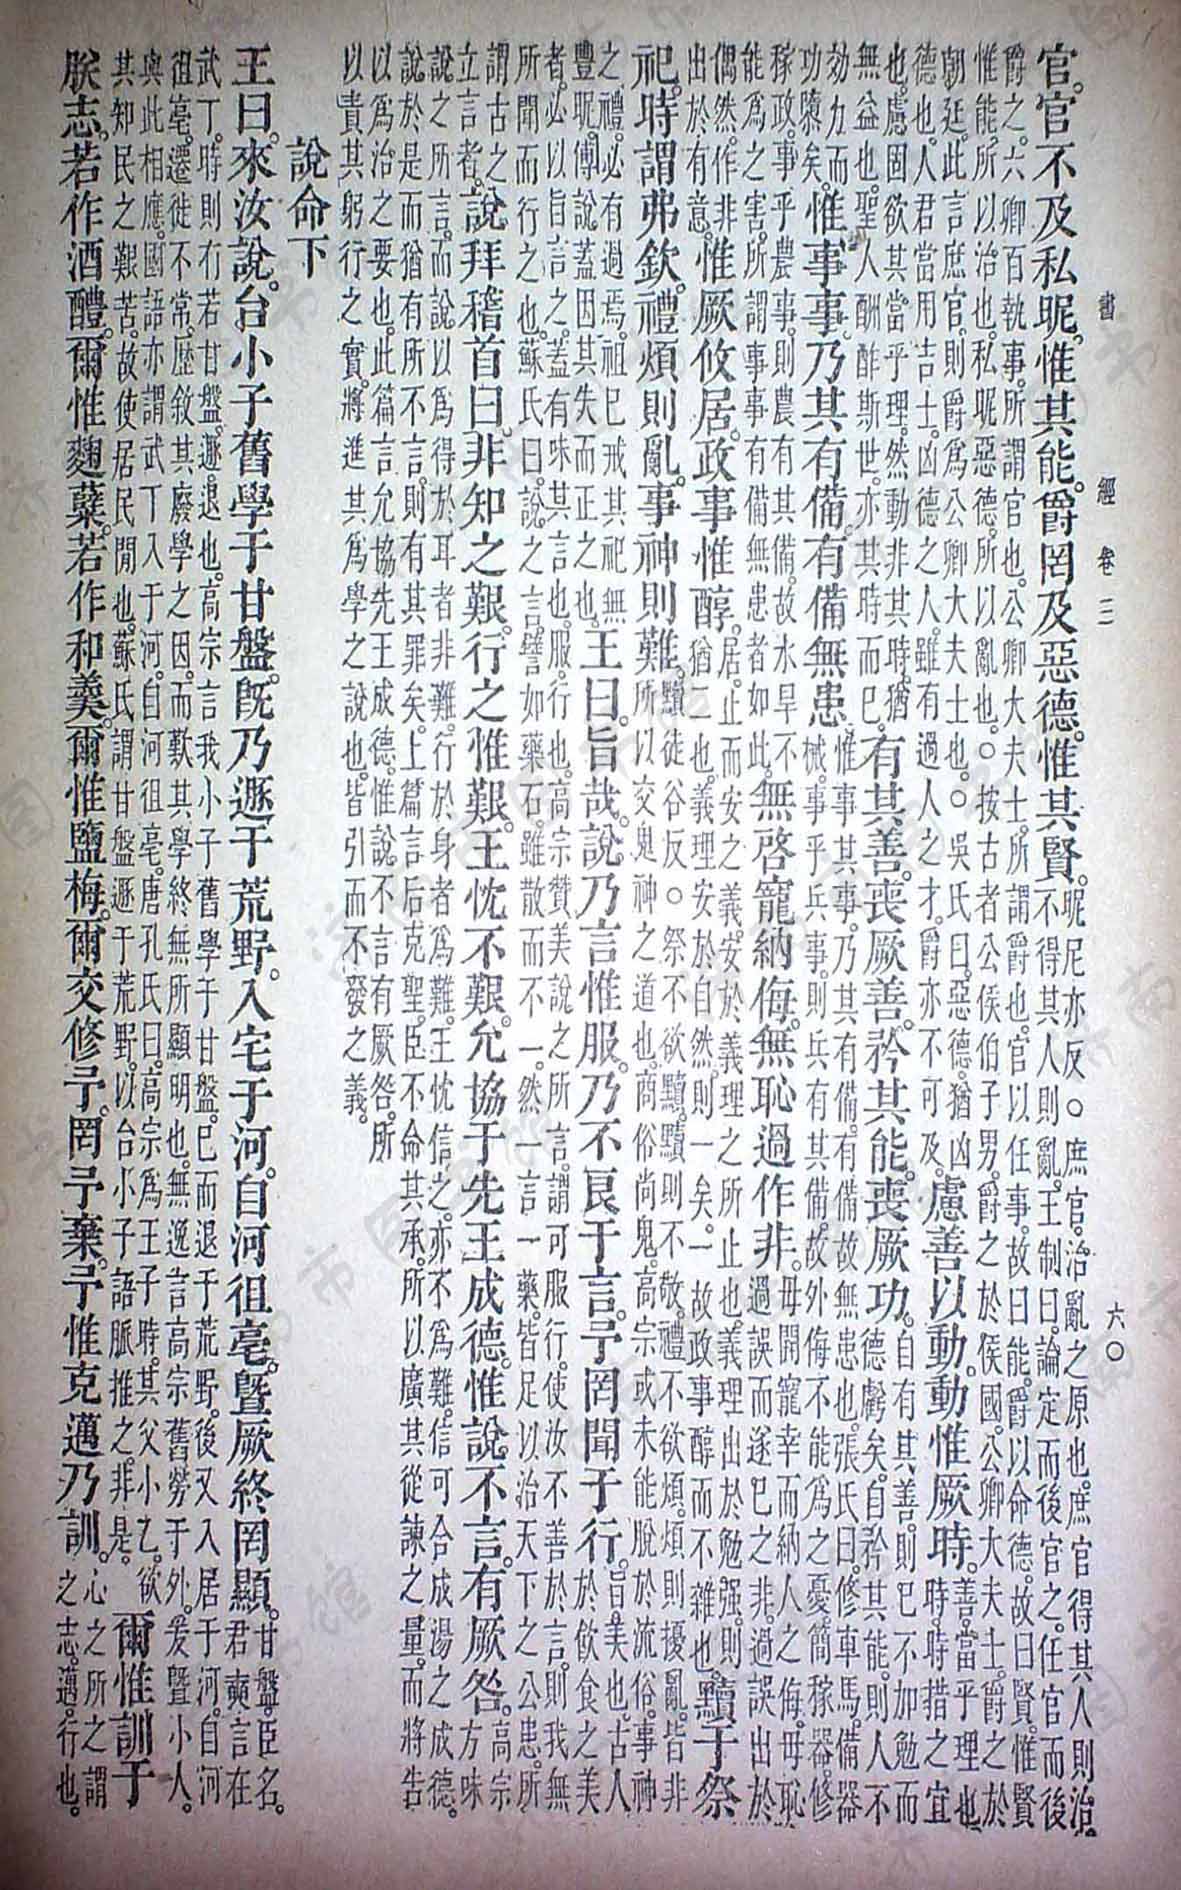 書經 卷三
六〇
官。官不及私昵。惟其能。爵罔及惡德。惟其賢。
昵尼亦反○庶官。治亂之原也。庶官得其人則治。
不得其人則亂。王制曰。論定而後官之。任官而後
爵之。六卿百執事。所謂官也。公卿大夫士。所謂爵也。官以任事。故曰能。爵以命德。故曰賢。惟賢
惟能。所以治也。私昵惡德。所以亂也。○按古者公侯伯子男。爵之於侯國。公卿大夫士。爵之於
朝廷。此言庶官。則爵爲公卿大夫士也。○吳氏曰。惡德猶凶
德也。人君當用吉士。凶德之人。雖有過人之才。爵亦不可及。
慮善以動。動惟厥時。
善。當乎理也。
時。時措之宜
也。慮固欲其當乎理。然動非其時。猶
無益也。聖人酬酢斯世。亦其時而已。
有其善。喪厥善。矜其能。喪厥功。
自有其善。則已不加勉而
德虧矣。自矜其能。則人不
効力而
功隳矣。
惟事事。乃其有備。有備無患。
惟事其事。乃其有備。有備故無患也。張氏曰。修車馬。備器
械。事乎兵事。則兵有其備。故外侮不能爲之憂。簡稼器。修
稼政。事乎農事。則農有其備。故水旱不
能爲之害。所謂事事有備無患者如此。
無啓寵納侮。無恥過作非。
毋開寵幸而納人之侮。毋恥
過誤而遂已之非。過誤出於
偶然。作非
出於有意。
惟厥攸居。政事惟醇。
居。止而安之義。安於義理之所止也。義理出於勉强。則
猶二也。義理安於自然。則一矣。一故政事醇而不雜也。
黷于祭
祀。時謂弗欽。禮煩則亂。事神則難。
黷徒谷反○祭不欲黷。黷則不敬。禮不欲煩。煩則擾亂。皆非
所以交鬼神之道也。商俗尚鬼。高宗或未能脫於流俗。事神
之禮。必有過焉。祖已戒其祀無
豐昵。傅說蓋因其失而正之也。
王曰。旨哉。說乃言惟服。乃不良于言。予罔聞于行。
旨。美也。古人
於飲食之美
者。必以旨言之。蓋有味其言也。服。行也。高宗贊美說之所言。謂可服行。使汝不善於言。則我無
所聞而行之也。蘇氏曰。說之言。譬如藥石。雖散而不一。然一言一藥。皆足以治天下之公患。所
謂古之
立言者。
說拜稽首曰。非知之艱。行之惟艱。王忱不艱。允協于先王成德。惟說不言。有厥咎。
高宗
方味
說之所言。而說以爲得於耳者非難。行於身者爲難。王忱信之。亦不爲難。信可合成湯之成德。
說於是而猶有所不言。則有其罪矣。上篇言后克聖。臣不命其承。所以廣其從諫之量。而將告
以爲治之要也。此篇言允協先王成德。惟說不言有厥咎。所
以責其躬行之實。將進其爲學之說也。皆引而不發之義。
說命下
王曰。來汝說。台小子舊學于甘盤。旣乃遯于荒野。入宅于河。自河徂亳。曁厥終罔顯。
甘盤。臣名。
君奭言在
武丁。時則有若甘盤。遯。退也。高宗言我小子舊學于甘盤。已而退于荒野。後又入居于河。自河
徂亳。遷徙不常。歷敘其廢學之因。而歎其學終無所顯明也。無逸言高宗舊勞于外。爰曁小人。
與此相應。國語亦謂武丁入于河。自河徂亳。唐孔氏曰。高宗爲王子時。其父小乙。欲
其知民之艱苦。故使居民閒也。蘇氏謂甘盤遯于荒野。以台小子語脈推之。非是。
爾惟訓于
朕志。若作酒醴。爾惟麴糵。若作和羹。爾惟鹽梅。爾交修予。罔予棄。予惟克邁乃訓。
心之所之謂
之志。邁。行也。